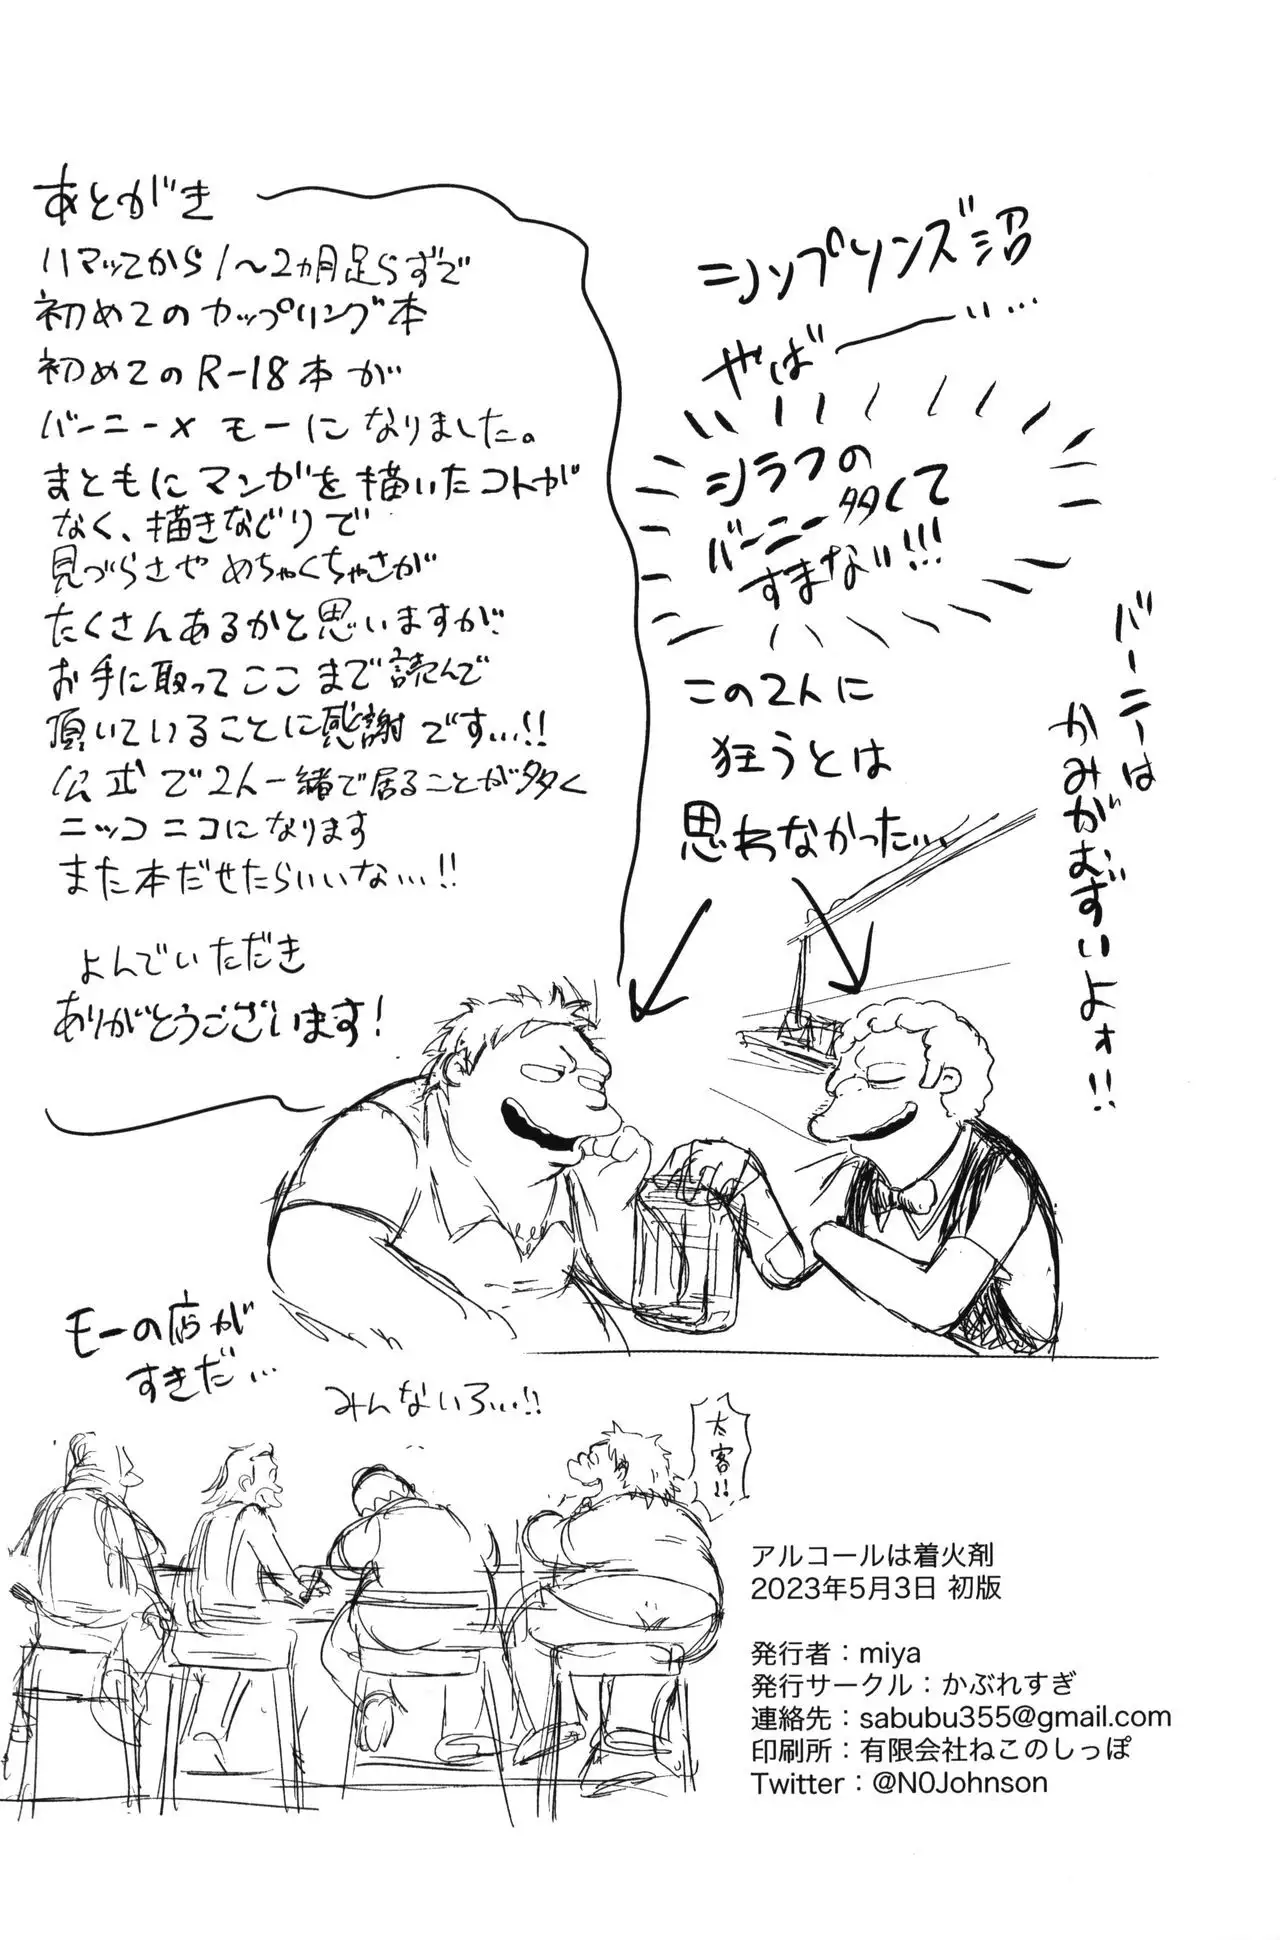 あとがき
ハマッてから1〜2ヵ月足らずで
初めてのカップリング本
初めてのR-18本が
バーニー×モーになりました。
まともにマンガを描いたコトが
なく、描きなぐりで
見づらさやめちゃくちゃさが
たくさんあるかと思いますが
お手に取ってここまで読んで
頂いていることに感謝です…!!
公式で2人一緒で居ることが多く
ニッコニコになります
また本だせたらいいな…!!
よんでいただき
ありがとうございます!
シンプソンズ沼
やばーい…
シラフの
バーニー多くて
すまない!!!
この2人に
狂うとは
思わなかった…
バーニーは
かみがむずいよォ!!
モーの店が
すきだ…
みんないろ…!!
太客!!
アルコールは着火剤
2023年5月3日 初版
発行者：miya
発行サークル：かぶれすぎ
連絡先：sabubu355@gmail.com
印刷所：有限会社ねこのしっぽ
Twitter：@N0Johnson